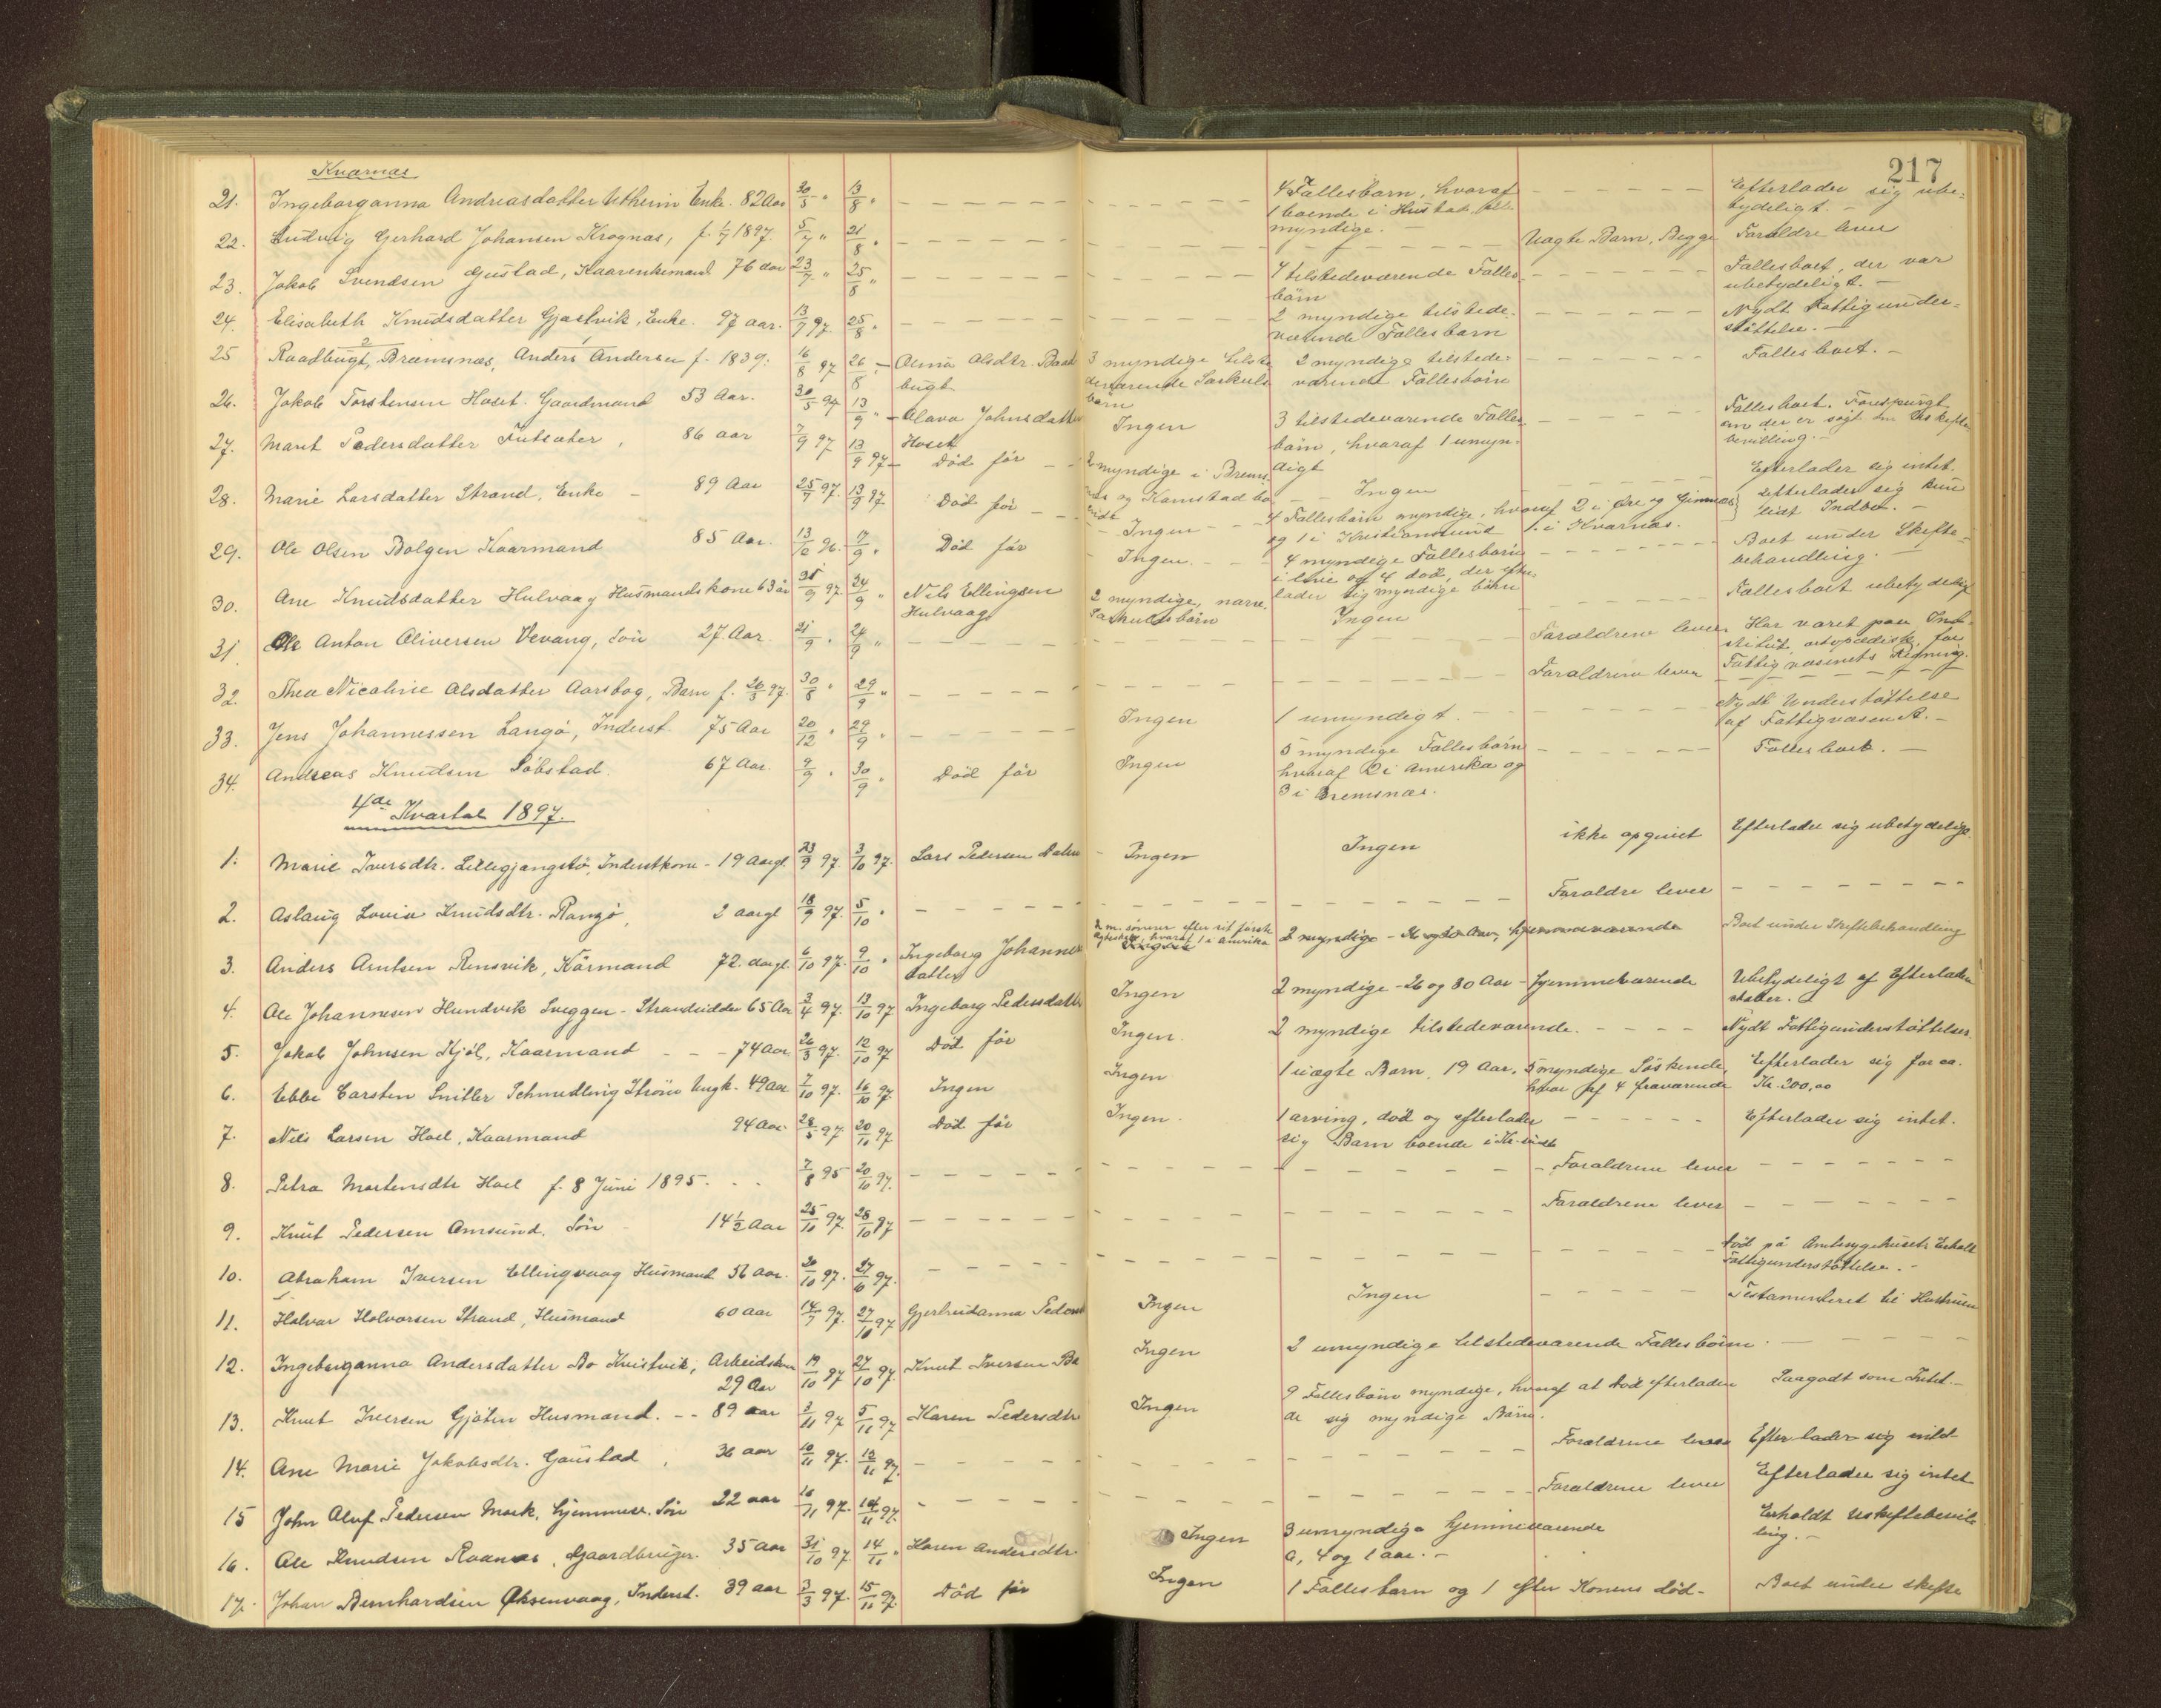 217
Kvernæs
21. Ingeborganna Andreasdatter Utheim Enke. 82 Aar 30/5 " 13/8 " 4 Fællesbørn, hvoraf Efterlader sig ube-
1 boende i Hustad, alle tydeligt. -
myndige. -
22. Ludvig Gerhard Johansen Krognæs, f. 1/7 1897. 5/7 " 21/8 " Uægte Barn, Begge Forældre lever
23. Jakob Svendsen Gustad, Kaarenkemand 76 aar 23/7 " 25/8 " 4 tilstedeværende Fælles- Fællesboet, der var
børn ubetydeligt. -
24. Elisabeth Knudsdatter Gjøstvik, Enke. 97 aar. 13/7 97. 25/8 " 2 myndige tilstede- Nydt Fattigunder-
værende Fællesbørn støttelse. -
25 Raadbugt, Bremsnæs, Anders Andersen f. 1839. 16/8 97 26/8 " - Olina Olsdtr. 3 myndige tilste 2 myndige tilstede- Fællesboet. -
bugt deværende Særkuls værende Fællesbørn
børn
26. Jakob Torstensen Hoset. Gaardmand 53 Aar. 30/5 97 13/9 " - Olava Johnsdatter Ingen 3 tilstedeværende Fælles- Fællesboet. Forespurgt
Hoset børn, hvoraf 1 umyn- om der er søgt om Uskifte-
digt bevilling. -
27. Marit Pedersdatter Futsæter, 86 aar 7/9 97 13/9 97 - Død før - - 2 myndige i Brems- Ingen Efterlader sig intet.
næs og Kornstad bo
ende
28. Marie Larsdatter Strand, Enke - 89 Aar 25/7 97. 13/9 97 Død før - - Ingen - - 4 Fællesbørn myndige, hvoraf 2 i Øre og Gimnæs Efterlader sig kun
og 1 i Kristiansund 1 i Kvernæs. lidt Indbo. -
29. Ole Olsen Bolgen Kaarmand 85 Aar. 13/12 96. 17/9 " Død før Ingen. - - 4 myndige Fællesbørn Boet under Skifte-
i live og 4 død, der efter- behandling. -
lader sig myndige børn
30. Ane Knudsdatter Hulvaag Husmandskone 63 år 97. 24/9 " Nils Ellingsen 2 myndige, nærv. Ingen Fællesboet ubetydelig
Hulvaag Særkuldsbørn
31. Ole Anton Oliversen Vevang, Søn 27 Aar. 21/9 " 24/9 " Forældrene lever Har været paa Ind-
stitut, ortopædisk, for
Fattigvæsenets Regning.
32. Thea Nicoline Olsdatter Aarsbog, Barn f. 26/3 97. 30/8 " 29/9 " Forældrene lever
33. Jens Johannessen Langø, Inderst. 75 Aar 20/12 " 29/9 " Ingen 1 umyndigt. Nydt Understøttelse
af Fattigvæsenet. -
34. Andreas Knudsen Søbstad. 67 Aar. 9/9 " 30/9 " Død før Ingen 5 myndige Fællesbørn Fællesboet. -
hvoraf 2 i Amerika og
3 i Bremsnæs.
4de Kvartal 1897.
1. Marie Iversdtr. Lillegjengstø, Inderstkone - 19 Aargl. 23/9 97 3/10 97. Lars Pedersen - Ingen Ingen ikke opgivet Efterlader sig ubetydeligt
2. Aslaug Lovise Knudsdtr. Ramsø, 2 aargl 18/9 97. 5/10 " Forældre lever
3. Anders Arntsen Rensvik, Kårmand 72 aargl. 6/10 97. 9/10 " Ingeborg Johannes 2 m. sønner efter sit første 2 myndige - 26 og 30 Aar, hjemmeværende Boet under Skiftebehandling
datter ægteskab, hvoraf 1 i Amerika
4. Ole Johannesen Hundvik Sveggen - Strandsidder 65 Aar 3/4 97. 13/10 97 Ingeborg Pedersdatter Ingen 2 myndige - 26 og 30 Aar - hjemmeværende Ubetydeligt af Efterladen
skaber.
5. Jakob Johnsen Kjøl, Kaarmand - - - 74 Aar. 26/3 97. 12/10 97 Død før Ingen. 2 myndige tilstedeværende. Nydt Fattigunderstøttelse
6. Ebbe Carsten Snitler Schmidling Strøm Ungk. 49 Aar 7/10 97. 16/10 97. Ingen Ingen 1 uægte Barn, 19 Aar, 5 myndige Søskende, Efterlader sig for ca.
hvoraf 4 fraværende Kr. 200,00
7. Nils Larsen Hoel, Kaarmand 94 Aar 28/5 97. 20/10 97. Død før Ingen. 1 arving, død og efterlader Efterlader sig intet.
sig Barn boende i Kr.sund
8. Petra Martensdtr Hoel f. 8 Juni 1895. 7/8 95 20/10 97. Forældrene lever
9. Knut Pedersen Omsund, Søn 14½ Aar 25/10 97. 28/10 97 Forældrene lever
10. Abraham Iversen Ellingvaag Husmand 56 aar. 20/10 97. 27/10 97. død på Amtssygehuset. Erholdt
Fattigunderstøttelse. -
11. Halvor Halvorsen Strand, Husmand 60 aar 14/7 97. 27/10 97 Gjertrudanna Peders Ingen Ingen Testamenteret til Hustruen
12. Ingeborganna Andersdatter Bo Kvistvik, Arbeidskone 19/10 97 27/10 97. Knut Iversen Bo Ingen 2 umyndige tilstedeværende Fællesbørn.
29 Aar
13. Knut Iversen Gjøten Husmand. - - 89 aar 3/11 97 5/11 97 Karen Pedersdtr Ingen 9 Fællesbørn myndige, hvoraf at død efterladen Saagodt som Intet. -
de sig myndige Børn.
14. Ane Marie Jakobsdtr. Gaustad, 36 aar 10/11 97. 12/11 97. Forældrene lever Efterlader sig intet
15 John Oluf Pedersen Mork, hjemmev. Søn 22 aar 10/11 97. 14/11 97. Forældrene lever Efterlader sig intet
16. Ole Knudsen Roanæs, Gaardbruger. 35 aar 31/10 97 14/11 " Karen Andersdtr. Ingen 3 umyndige hjemmeværende Erholdt Uskiftebevil
6, 4 og 1 aar. - ling. -
17. Johan Bernhardsen Øksenvaag, Inderst. 39 aar 3/3 97. 15/11 97. Død før Ingen 1 Fællesbarn og 1 efter Konens død - Boet under skifte